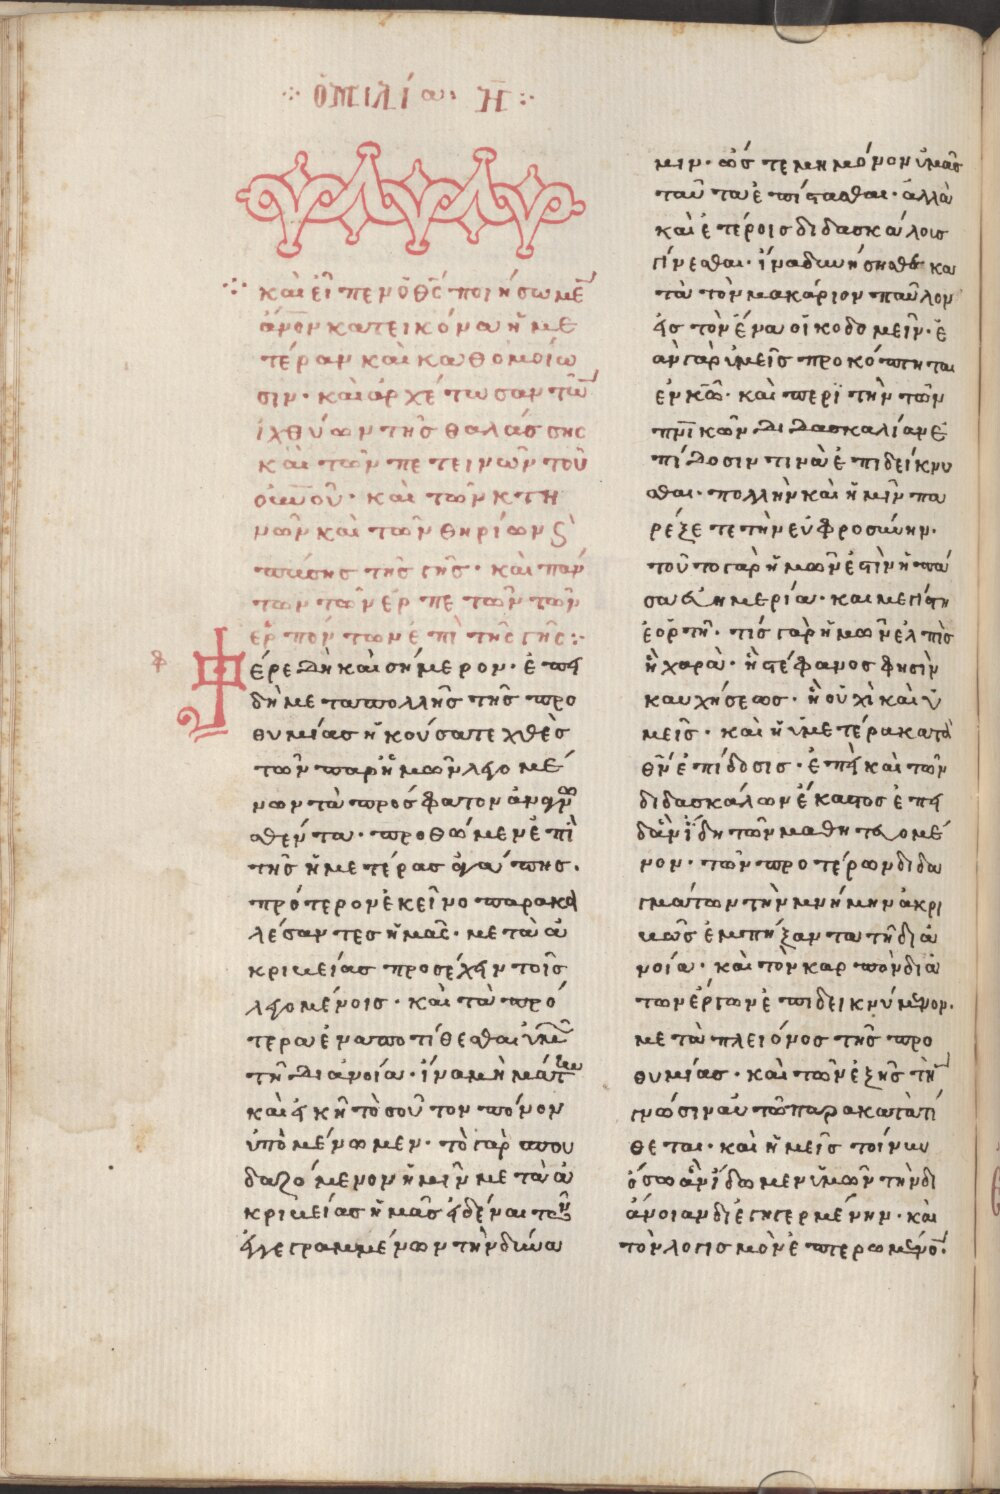 ὁμιλία· η̅
καὶ εἶπεν ὁ θ̅ς̅ ποιήσωμε̅
ἄνο̅ν κατ εἰκόνα ἡμε
τέραν καὶ καθ ὁμοίω
σιν· καὶ ἀρχέτωσαν τῶ̅
ἰχθύων τῆς θαλάσσης
καὶ τῶν πετεινῶν τοῦ
οὐ̅νοῦ· καὶ τῶν κτη
νῶν καὶ τῶν θηρίων ϛ̀
πάσης τῆς γῆς· καὶ πάν
των τῶν ἑρπετῶν τῶν
ἑρπόντων ἐπὶ τῆς γῆς:·
φ
Φέρε δὴ καὶ σήμερον· ἐπει
δὴ μετα πολλῆς τῆς προ
θυμίας ἠκούσατε χθὲς
τῶν παρ ἡμῶν λεγομέ
νων τὰ πρόσφατον ἀναγνω
σθέντα· προθῶμεν ἐπὶ
τῆς ἡμετέρας ἀγάπης·
πρότερον ἐκεῖνο παρακα
λέσαντες ἡμᾶς· μετὰ ἀ
κριβείας προσέχειν τοῖς
λεγομένοις· καὶ τὰ πρό
τερα ἐναποτίθεσθαι ὑμῶν
τῇ διανοία· ἵνα μὴ μάτην
καὶ εἰκῆ τὸσοῦτον πόνον
ὑπομένωμεν· τὸ γὰρ σπου
δαζόμενον ἡμῖν μετὰ ἀ
κριβείας ἡμᾶς εἰδέναι τῶν
ἐγγεγραμμένων τὴν δύνα
μιν· ὥστε μη μόνον ὑμᾶς
ταῦτα ἐπίστασθαι· ἀλλὰ
καὶ ἑτέροις διδασκάλοις
γίνεσθαι· ἵνα δυνήσησθε κα
τὰ τὸν μακάριον παῦλον
εἰς τὸν ἕνα οἰκοδομεῖν· ἐ
ὰν γὰρ ὑμεῖς προκόπτηται
ἐν κ̅ω̅· καὶ περὶ τὴν τῶν
πν̅ικῶν διδασκαλίαν ἐ
πίδοσιν τινὰ ἐπιδείκνυ
σθαι· πολλὴν καὶ ἡμῖν πα
ρέξετε τὴν εὐφροσύνην·
τοῦτο γὰρ ἡμῶν ἐστὶν ἡ πᾶ
σα εὐημερία· και μεγίστη
ἑορτὴ· τίς γὰρ ἡμῶν ἐλπὶς
ἢ χαρὰ· ἢ στέφανος φησὶν
καυχήσεως· ἢ οὐχὶ καὶ ὑ
μεῖς· καὶ ἡ ὑμετέρα κατὰ
θ̅ν̅ ἐπίδοσις· ἐπεὶ καὶ τῶν
διδασκάλων ἕκαστος ἐπει
δὰν ἴδη τῶν μαθητευομέ
νον· τῶν προτέρων διδα
γμάτων τὴν μνήμην ἀκρι
βῶς ἐμπήξαντα τῆ δια
νοία· καὶ τὸν καρπὸν διὰ
τῶν ἔργων ἐπιδεικνύμενον·
μετὰ πλείονος τῆς προ
θυμίας· καὶ τῶν ἑξῆς τὴν
γνῶσιν αὐτῶ παρακατατί
θεται· καὶ ἡμεῖς τοίνυν
ὅσω ἂν ἴδωμεν ὑμῶν τὴν δι
άνοιαν διεγηγερμένην· καὶ
τὸν λογισμὸν ἐπτερωμένο̅·